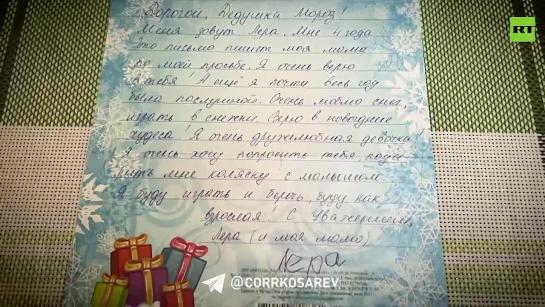 Дорогой, Дедушка Мороз!
Меня зовут Лера. Мне 4 года
Это письмо пишет моя мама
по моей просьбе. Я очень верю
в тебя! А ещё я почти весь год
была послушной. Очень люблю снег,
играть в снежки. Верю в новогодние
чудеса! Я очень дружелюбная девочка!
Я очень хочу попросить тебя пода-
рить мне коляску с малышом.
Я буду играть и беречь, буду как
взрослая! С Уважением,
Лера (и моя мама)
Лера
RT
@CORRKOSAREV